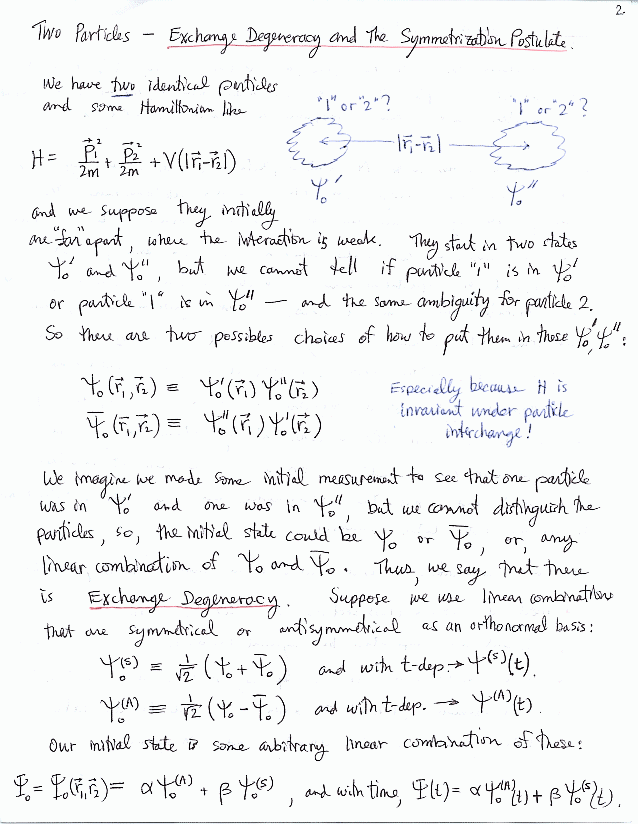 2.
Two Particles – Exchange Degeneracy and The Symmetrization Postulate.
We have two identical particles
and some Hamiltonian like
"1" or "2"?
"1" or "2"?
H = p⃗₁²/2m + p⃗₂²/2m + V(|r⃗₁-r⃗₂|)
|r⃗₁-r⃗₂|
ψ₀′
ψ₀″
and we suppose they initially
are "far" apart, where the interaction is weak. They start in two states
ψ₀′ and ψ₀″, but we cannot tell if particle "1" is in ψ₀′
or particle "1" is in ψ₀″ — and the same ambiguity for particle 2.
So there are two possibles choices of how to put them in those ψ₀′, ψ₀″:
ψ₀(r⃗₁,r⃗₂) ≡ ψ₀′(r⃗₁) ψ₀″(r⃗₂)
ψ̄₀(r⃗₁,r⃗₂) ≡ ψ₀″(r⃗₁) ψ₀′(r⃗₂)
Especially because H is
invariant under particle
interchange!
We imagine we made some initial measurement to see that one particle
was in ψ₀′ and one was in ψ₀″, but we cannot distinguish the
particles, so, the initial state could be ψ₀ or ψ̄₀, or, any
linear combination of ψ₀ and ψ̄₀. Thus, we say that there
is Exchange Degeneracy. Suppose we use linear combinations
that are symmetrical or antisymmetrical as an orthonormal basis:
ψ₀⁽ˢ⁾ ≡ 1/√2 (ψ₀ + ψ̄₀) and with t-dep → ψ⁽ˢ⁾(t).
ψ₀⁽ᴬ⁾ ≡ 1/√2 (ψ₀ - ψ̄₀) and with t-dep. → ψ⁽ᴬ⁾(t).
Our initial state is some arbitrary linear combination of these:
Ψ₀ = Ψ₀(r⃗₁,r⃗₂) = αψ₀⁽ᴬ⁾ + βψ₀⁽ˢ⁾, and with time, Ψ(t) = αψ₀⁽ᴬ⁾(t) + βψ₀⁽ˢ⁾(t).